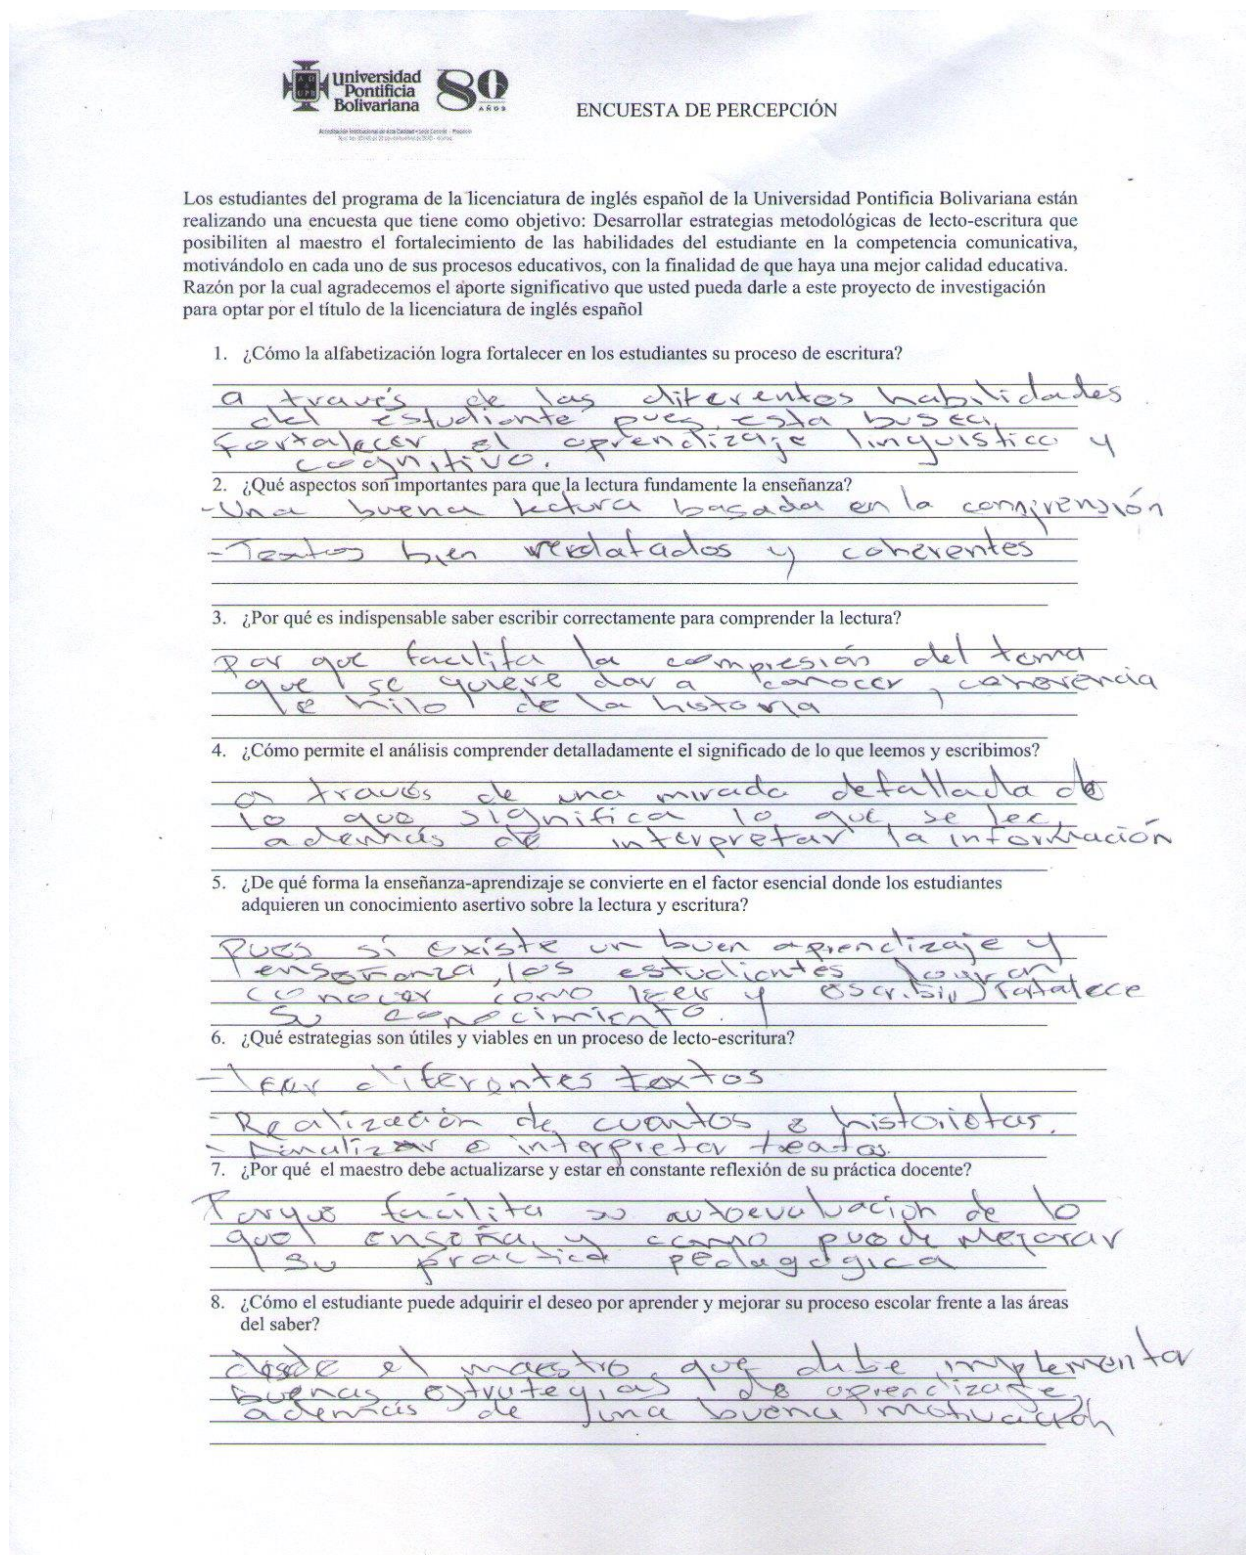 Universidad
Pontificia
Bolivariana
80
AÑOS
ENCUESTA DE PERCEPCIÓN
Los estudiantes del programa de la licenciatura de inglés español de la Universidad Pontificia Bolivariana están
realizando una encuesta que tiene como objetivo: Desarrollar estrategias metodológicas de lecto-escritura que
posibiliten al maestro el fortalecimiento de las habilidades del estudiante en la competencia comunicativa,
motivándolo en cada uno de sus procesos educativos, con la finalidad de que haya una mejor calidad educativa.
Razón por la cual agradecemos el aporte significativo que usted pueda darle a este proyecto de investigación
para optar por el título de la licenciatura de inglés español
1. ¿Cómo la alfabetización logra fortalecer en los estudiantes su proceso de escritura?
a través de las diferentes habilidades
del estudiante pues esta busca
fortalecer el aprendizaje linguistico y
cognitivo.
2. ¿Qué aspectos son importantes para que la lectura fundamente la enseñanza?
- Una buena lectura basada en la
- Textos bien y coherentes
3. ¿Por qué es indispensable saber escribir correctamente para comprender la lectura?
Por que facilita la compresión del tema
que se quiere dar a conocer, coherencia
le hilo de la historia
4. ¿Cómo permite el análisis comprender detalladamente el significado de lo que leemos y escribimos?
a través de una mirada detallada de
lo que significa lo que se lee,
además de interpretar la información
5. ¿De qué forma la enseñanza-aprendizaje se convierte en el factor esencial donde los estudiantes
adquieren un conocimiento asertivo sobre la lectura y escritura?
Pues sí existe un buen aprendizaje y
enseñanza, los estudiantes logran
conocer como leer y escribir, fortalece
su conocimiento.
6. ¿Qué estrategias son útiles y viables en un proceso de lecto-escritura?
- leer diferentes textos
- Realización de cuentos e historietas.
- Analizar e interpretar textos.
7. ¿Por qué el maestro debe actualizarse y estar en constante reflexión de su práctica docente?
Porque facilita su autoevaluación de lo
que enseña, y como puede mejorar
su practica pedagógica
8. ¿Cómo el estudiante puede adquirir el deseo por aprender y mejorar su proceso escolar frente a las áreas
del saber?
desde el maestro, que debe implementar
buenas estrategias de aprendizaje,
además de una buena motivación